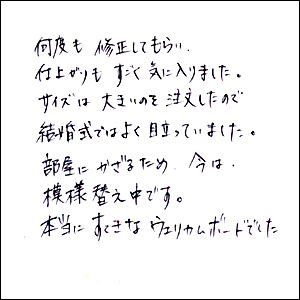 何度も 修正してもらい、
仕上がりも すごく気に入りました。
サイズは 大きいのを 注文したので
結婚式ではよく目立っていました。
部屋に かざるため 今は、
模様替え中です。
本当に すてきな ウェルカムボードでした